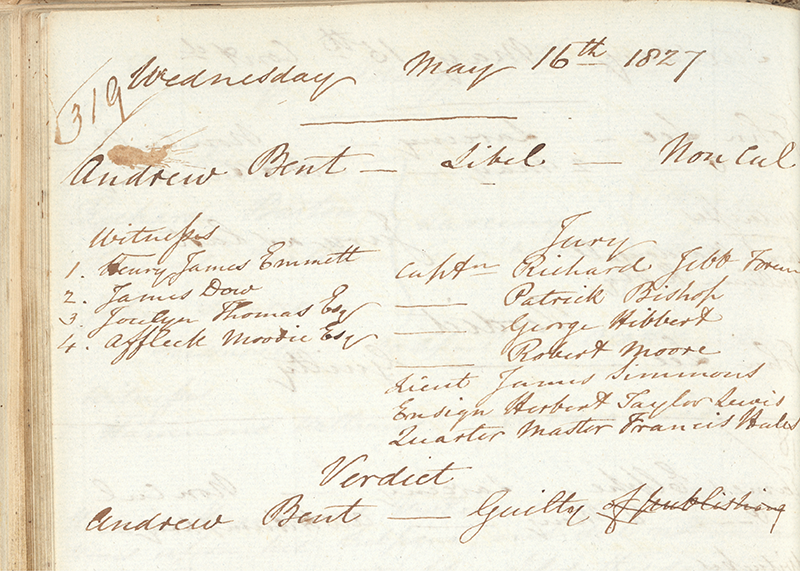 Wednesday May 16th 1827
(319
Andrew Bent — Libel — Non Cul
Witnesses
1. Henry James Emmett
2. James Dow
3. Jocelyn Thomas Esq
4. Affleck Moodie Esq
Jury
Captn Richard Jebb Forem
—— Patrick Bishop
—— George Hibbert
—— Robert Moore
Lieut James Simmons
Ensign Herbert Taylor Lewis
Quarter Master Francis Hales
Verdict
Andrew Bent — Guilty of publishing